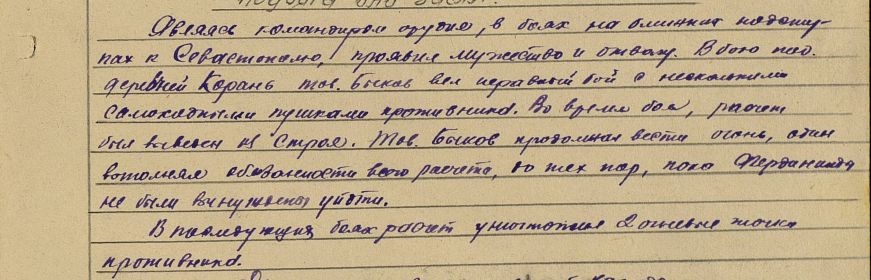 Являясь командиром орудия, в боях на ближних подсту-
пах к Севастополю, проявил мужество и отвагу. В бою под
деревней Карань тов. Быков вел неравный бой с несколькими
самоходными пушками противника. Во время боя, расчет
был выведен из строя. Тов. Быков продолжая вести огонь, один
выполнял обязанности всего расчета, до тех пор, пока Фердинанды
не были вынуждены уйти.
В последующих боях расчет уничтожил 2 огневые точки
противника.